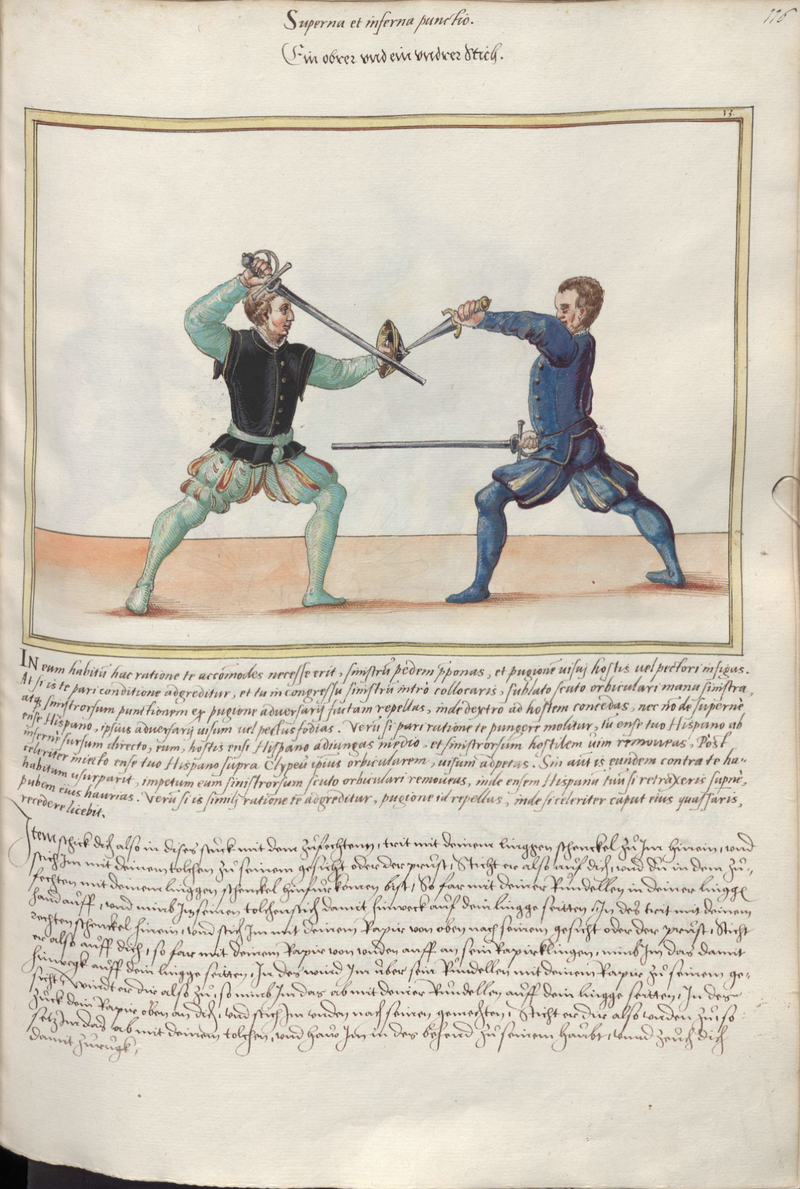 Superna et inferna punctio.
116
Ein obrer vnd ein vndrer Stich.
13.
IN eum habitū hac ratione te accōmodes necesse erit, sinistrū pedem pponas, et pugionē uisuj hostis uel pectori infigas.
At si is te pari conditione adgreditur, et tu in congressu sinistrū intrò collocaris, sublato scuto orbiculari manu sinistra,
atq̃ sinistrorsum punctionem ex pugione aduersarij factam repellas, inde dextro ad hostem concedas, nec nō de superne
ense Hispano, ipsius aduersarij uisum uel pectus fodias. Verū si pari ratione te pungere molitur, tu ense tuo Hispano ab
infernè sursum directo, eum, hostis ensi Hispano adiungas medio, et sinistrorsum hostilem uim remoueas. Post
celeriter iniecto ense tuo Hispano supra Clypeū ipsius orbicularem, uisum adpetas. Sin aūt is eundem contra te ha-
bitum usurparit, impetum eam sinistrorsum scuto orbiculari remoueas, inde ensem Hispanū tuū si retraxeris supernè,
pubem eius haurias. Verū si is similj ratione te adgreditur, pugione id repellas, inde si celeriter caput eius quassaris,
recedere licebit.
Item schick dich also in dises stuck mit dem zůfechtenn, trit mit deinem linggen schenckel zů Im hinein, vnd
stich Im mit deinem tolchen zů seinem gesicht oder der prust, Sticht er also auf dich, vnd du in dem zů-
fechten mit deinem linggen schenckel hinfur komen bist, So far mit deiner Rundellen in deiner lingge
hand auff, vnnd nimb Im seinen tolchenstich damit hinweck auf dein lingge seitten, In des trit mit deinem
rechten schenckel hinein, vnnd stich Im mit deinem Rapir von oben nach seinem gesicht oder der prust, Sticht
er also auff dich, so far mit deinem Rapir von vnden auff an sein Rapirklingen, nimb Im das damit
hinwegk auff dein lingge seitten, In des wind Im über sein Rundellen mit deinem Rapir zů seinem ge-
sicht, Windt er dir also zů, so nimb Im das ab mit deiner Rundellen auff dein lingge seitten, In des
zuck dein Rapir oben an dich, vnd stich Im vnden nach seinen gemechten, Sticht er dir also vnden zů so
setz Im das ab mit deinem tolchen, vnnd haw Im in des behend zů seinem haubt, vnnd zeuch dich
damit zurugk,